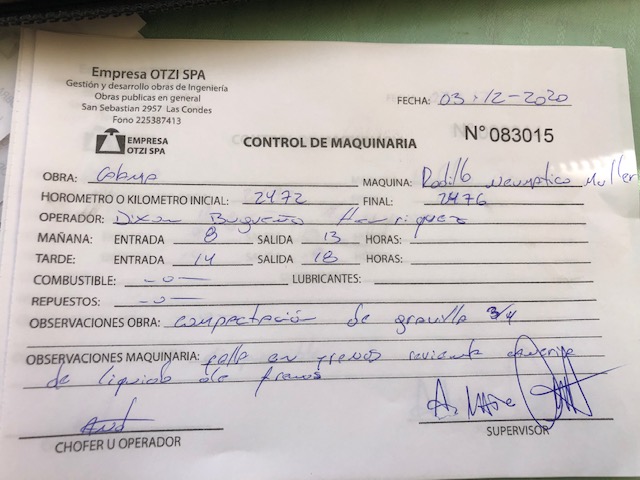 Empresa OTZI SPA
Gestión y desarrollo obras de Ingeniería
Obras publicas en general
San Sebastian 2957 Las Condes
Fono 225387413
FECHA: 03-12-2020
EMPRESA
OTZI SPA
CONTROL DE MAQUINARIA
N° 083015
OBRA: MAQUINA: Rodillo Neumatico Muller
HOROMETRO O KILOMETRO INICIAL: 2472 FINAL: 2476
OPERADOR: Dixon Henriquez
MAÑANA: ENTRADA 8 SALIDA 13 HORAS:
TARDE: ENTRADA 14 SALIDA 18 HORAS:
COMBUSTIBLE: -o- LUBRICANTES:
REPUESTOS: -o-
OBSERVACIONES OBRA: Compactación de gravilla 3/4
OBSERVACIONES MAQUINARIA: falla en frenos
de liquido de frenos
CHOFER U OPERADOR
SUPERVISOR